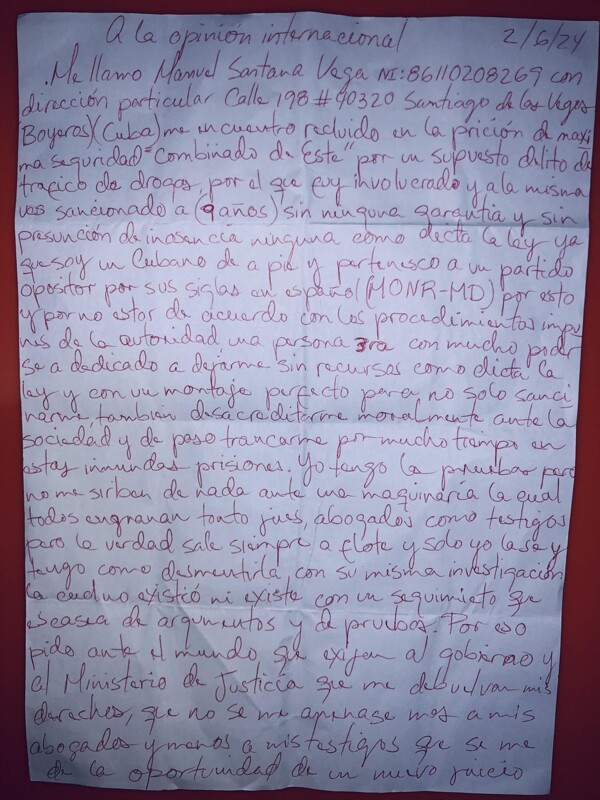 A la opinión internacional 2/6/24
.Me llamo Manuel Santana Vega NI:86110208269 con
dirección particular Calle 198 # 40320 Santiago de las Vegas
Boyeros)(Cuba) me encuentro recluido en la prición de maxi
ma seguridad "Combinado de Este" por un supuesto dilito de
trafico de drogas, por el que fuy involucrado y a la misma
ves sancionado a (9 años) sin ninguna garantia y sin
presunción de inosencia ninguna como dicta la ley ya
que soy un Cubano de a pie y pertenesco a un partido
opositor por sus siglas en español (MONR-MD) por esto
y por no estar de acuerdo con los procedimientos impu
nes de la autoridad una persona 3ra con mucho poder
se a dedicado a dejarme sin recursos como dicta la
ley y con un montaje perfecto para no solo sanci
narme, tambien desacreditarme moralmente ante la
sociedad y de paso trancarme por mucho tiempo en
estas inmundas prisiones. Yo tengo la pruebas pero
no me sirben de nada ante una maquinaria la cual
todos engranan tanto jues, abogados como testigos
pero la verdad sale siempre a flote y solo yo la se y
tengo como desmentirla con su misma investigación
la cual no existió ni existe con un seguimieto que
escasea de argumentos y de pruebas. Por eso
pido ante el mundo que exijan al gobierno y
al Ministerio de Justicia que me debuelvan mis
derechos, que no se me amenase mas a mis
abogados y menos a mis testigos que se me
de la oportunidad de un nuevo juicio